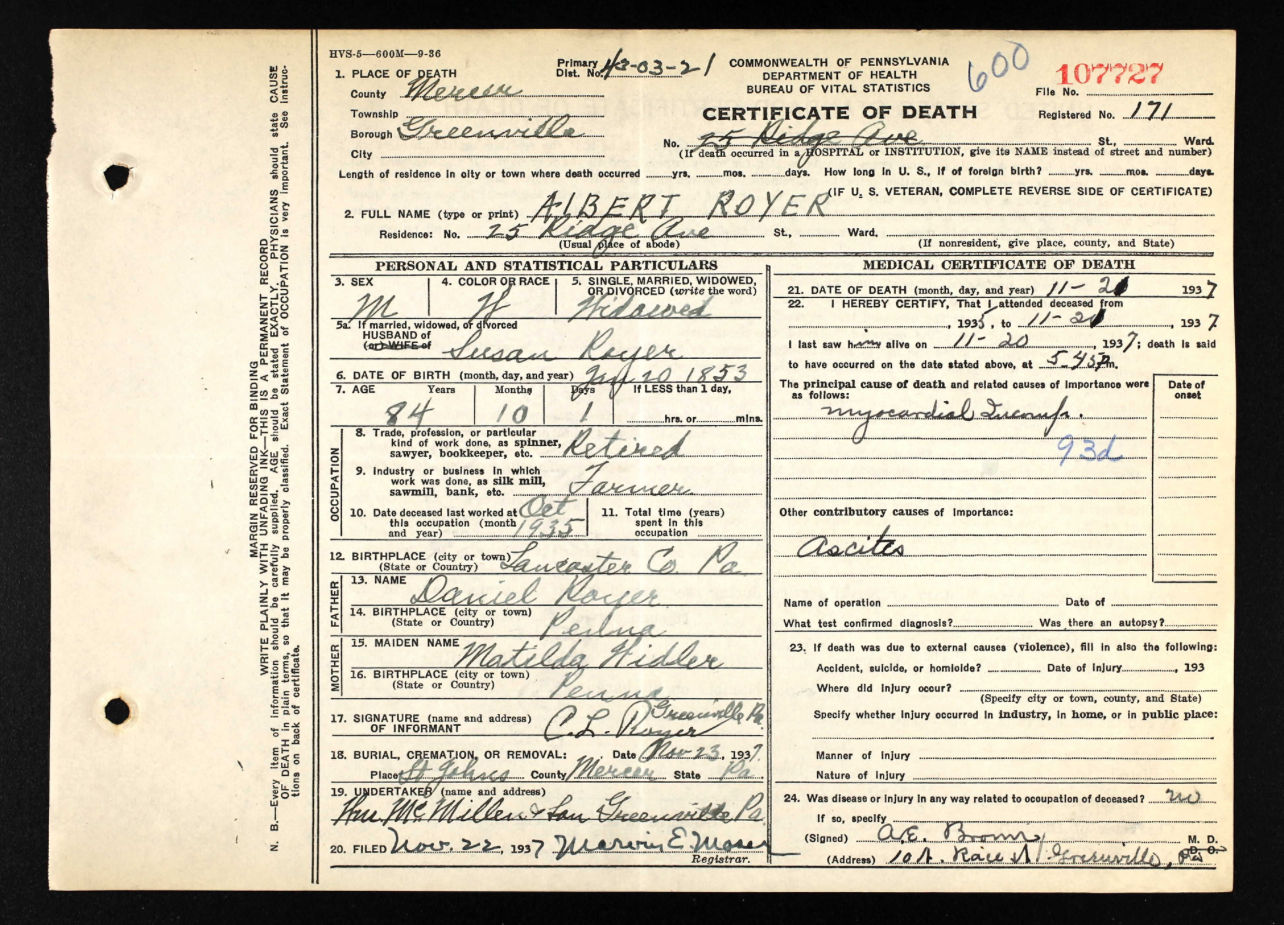 HVS-5—600M—9-36
Primary Dist. No. 43-03-21
COMMONWEALTH OF PENNSYLVANIA
DEPARTMENT OF HEALTH
BUREAU OF VITAL STATISTICS
600
107727
File No.
CERTIFICATE OF DEATH
Registered No. 171
1. PLACE OF DEATH
County Mercer
Township
Borough Greenville
City
No. 25 Ridge Ave St., Ward.
(If death occurred in a HOSPITAL or INSTITUTION, give its NAME instead of street and number)
Length of residence in city or town where death occurred yrs. mos. days. How long in U. S., if of foreign birth? yrs. mos. days.
(IF U. S. VETERAN, COMPLETE REVERSE SIDE OF CERTIFICATE)
2. FULL NAME (type or print) ALBERT ROYER
Residence: No. 25 Ridge Ave St., Ward.
(Usual place of abode) (If nonresident, give place, county, and State)
PERSONAL AND STATISTICAL PARTICULARS
3. SEX M
4. COLOR OR RACE W
5. SINGLE, MARRIED, WIDOWED, OR DIVORCED (write the word) Widowed
5a. If married, widowed, or divorced
HUSBAND of
(or) WIFE of Susan Royer
6. DATE OF BIRTH (month, day, and year) Jan 20 1853
7. AGE Years Months Days If LESS than 1 day,
84 10 1 hrs. or mins.
OCCUPATION
8. Trade, profession, or particular
kind of work done, as spinner,
sawyer, bookkeeper, etc. Retired
9. Industry or business in which
work was done, as silk mill,
sawmill, bank, etc. Farmer
10. Date deceased last worked at
this occupation (month
and year) Oct 1935
11. Total time (years)
spent in this
occupation
12. BIRTHPLACE (city or town)
(State or Country) Lancaster Co. Pa
FATHER
13. NAME Daniel Royer
14. BIRTHPLACE (city or town)
(State or Country) Penna
MOTHER
15. MAIDEN NAME Matilda Widler
16. BIRTHPLACE (city or town)
(State or Country) Penna
17. SIGNATURE (name and address)
OF INFORMANT C. L. Royer Greenville Pa.
18. BURIAL, CREMATION, OR REMOVAL: Date Nov 23, 1937
Place St Johns County Mercer State Pa.
19. UNDERTAKER (name and address)
Wm McMillen & Son Greenville Pa.
20. FILED Nov. 22, 1937 Marvin E. Moser
Registrar.
MEDICAL CERTIFICATE OF DEATH
21. DATE OF DEATH (month, day, and year) 11-21 1937
22. I HEREBY CERTIFY, That I attended deceased from
, 1935, to 11-21, 1937
I last saw him alive on 11-20, 1937; death is said
to have occurred on the date stated above, at 5.45 P m.
The principal cause of death and related causes of importance were
as follows:
Date of
onset
Myocardial Incomp.
93d
Other contributory causes of importance:
Ascites
Name of operation Date of
What test confirmed diagnosis? Was there an autopsy?
23. If death was due to external causes (violence), fill in also the following:
Accident, suicide, or homicide? Date of injury, 193
Where did injury occur?
(Specify city or town, county, and State)
Specify whether injury occurred in industry, in home, or in public place:
Manner of injury
Nature of injury
24. Was disease or injury in any way related to occupation of deceased? no
If so, specify
(Signed) A. E. Brown, M. D.
D. O.
(Address) 10 N. Race St Greenville, Pa
MARGIN RESERVED FOR BINDING
WRITE PLAINLY WITH UNFADING INK—THIS IS A PERMANENT RECORD
N. B.—Every item of information should be carefully supplied. AGE should be stated EXACTLY. PHYSICIANS should state CAUSE
OF DEATH in plain terms, so that it may be properly classified. Exact Statement of OCCUPATION is very important. See instruc-
tions on back of certificate.